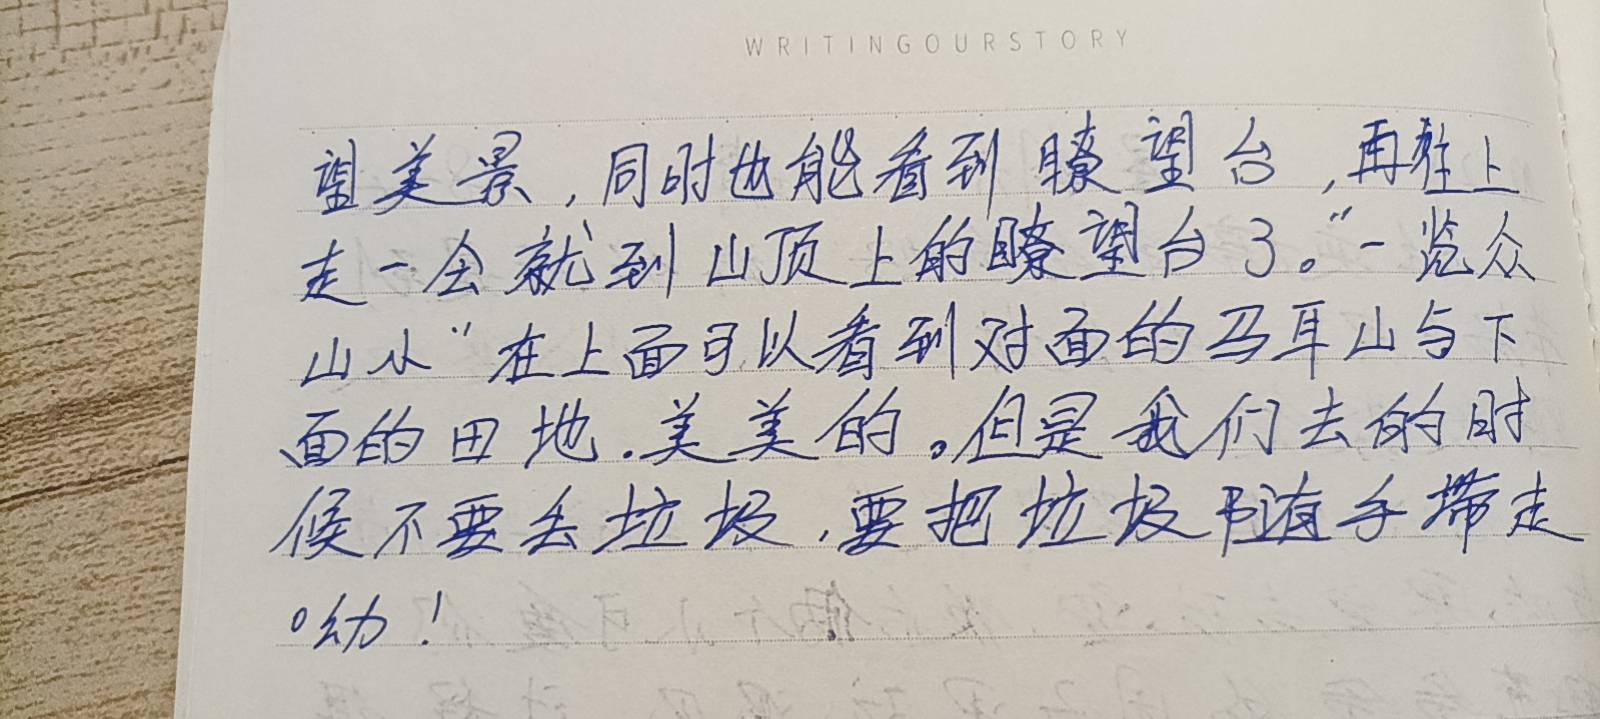 WRITINGOURSTORY
望美景,同时也能看到瞭望台,再往上
走一会就到山顶上的瞭望台了。“一览众
山小”在上面可以看到对面的马耳山与下
面的田地.美美的。但是我们去的时
候不要丢垃圾,要把垃圾随手带走
哟!